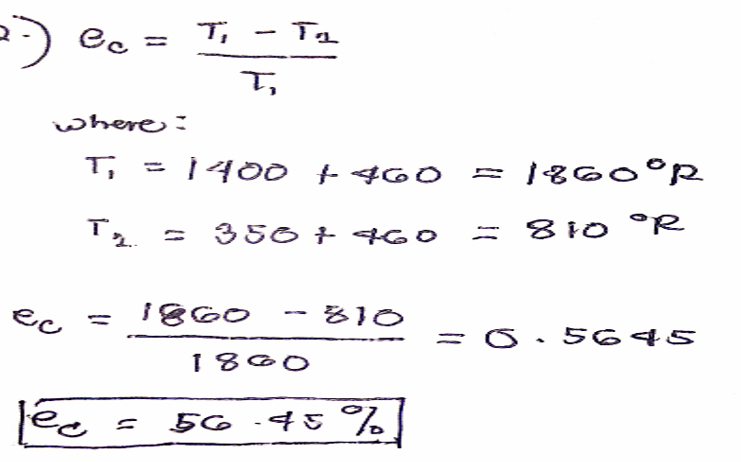 2.) e_c = (T₁ - T₂) / T₁
where:
T₁ = 1400 + 460 = 1860 °R
T₂ = 350 + 460 = 810 °R
e_c = (1860 - 810) / 1860 = 0.5645
e_c = 56.45 %